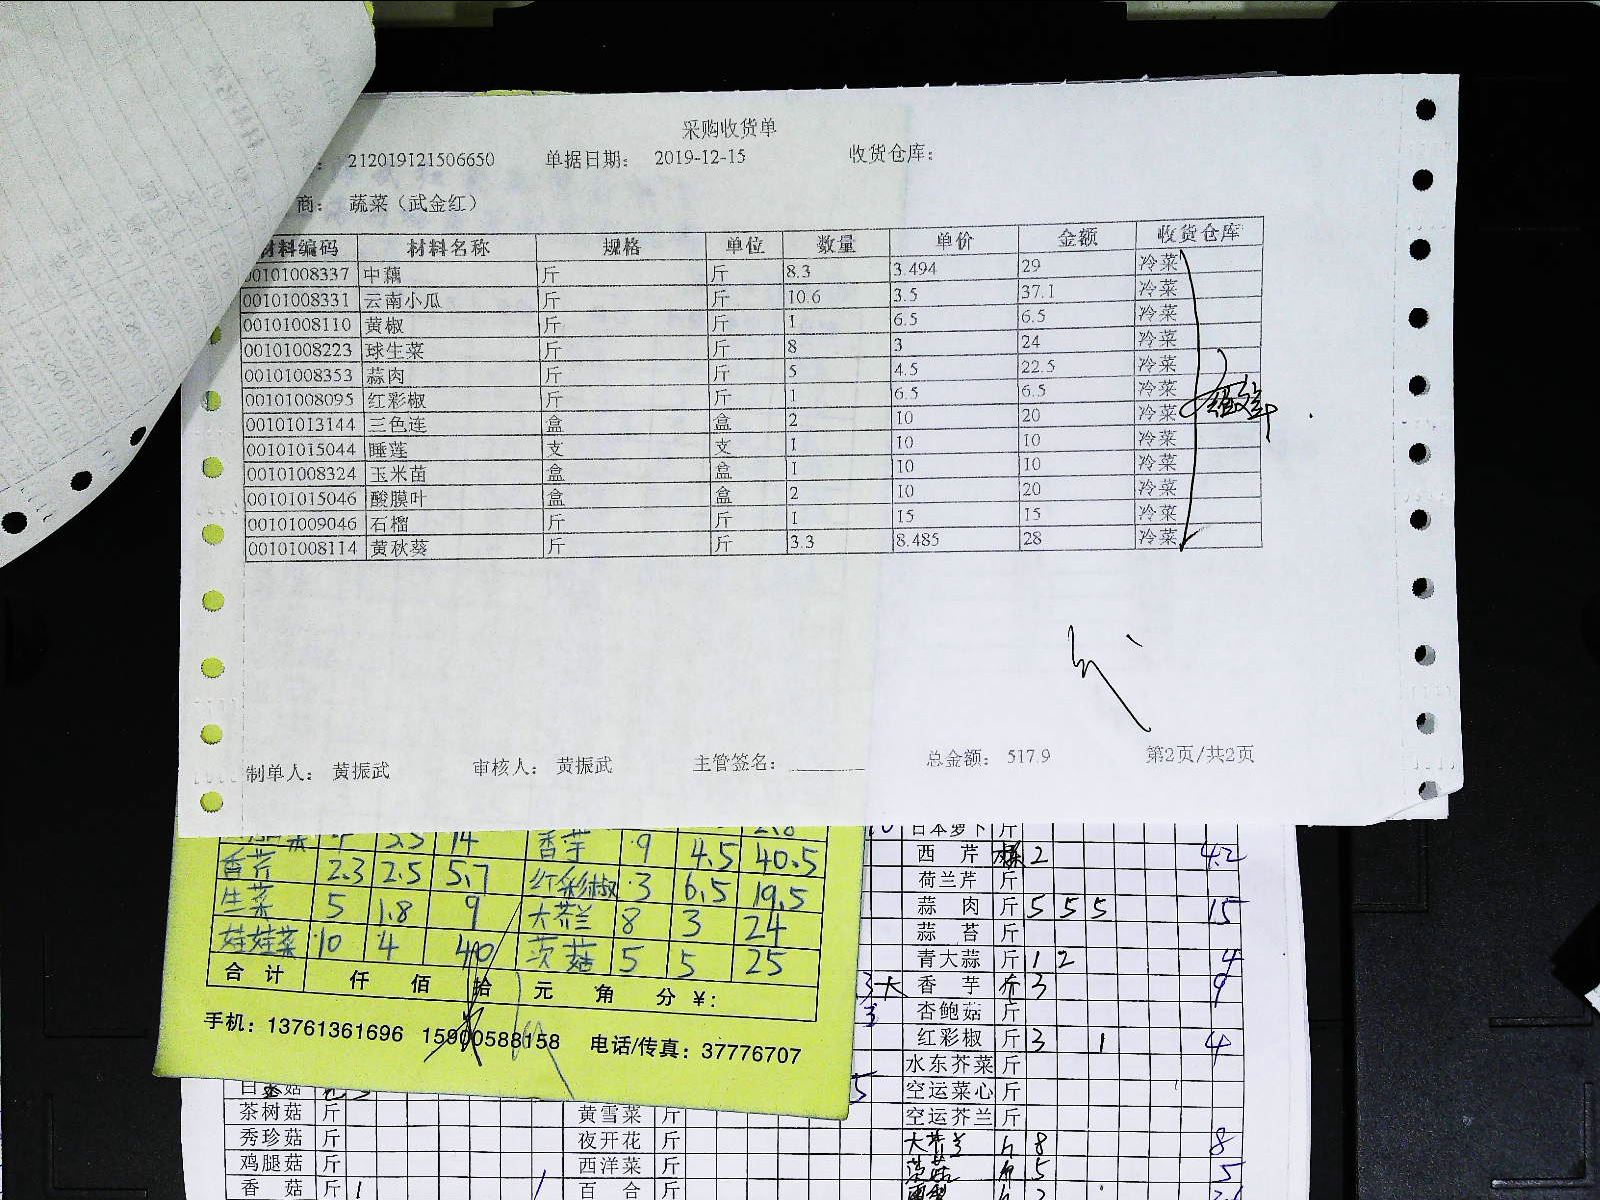 采购收货单
212019121506650 单据日期: 2019-12-15 收货仓库:
商: 蔬菜（武金红）
材料编码 材料名称 规格 单位 数量 单价 金额 收货仓库
00101008337 中藕 斤 斤 8.3 3.494 29 冷菜
00101008331 云南小瓜 斤 斤 10.6 3.5 37.1 冷菜
00101008110 黄椒 斤 斤 1 6.5 6.5 冷菜
00101008223 球生菜 斤 斤 8 3 24 冷菜
00101008353 蒜肉 斤 斤 5 4.5 22.5 冷菜
00101008095 红彩椒 斤 斤 1 6.5 6.5 冷菜
00101013144 三色连 盒 盒 2 10 20 冷菜
00101015044 睡莲 支 支 1 10 10 冷菜
00101008324 玉米苗 盒 盒 1 10 10 冷菜
00101015046 酸膜叶 盒 盒 2 10 20 冷菜
00101009046 石榴 斤 斤 1 15 15 冷菜
00101008114 黄秋葵 斤 斤 3.3 8.485 28 冷菜
制单人: 黄振武 审核人: 黄振武 主管签名: 总金额: 517.9 第2页/共2页
菜 3.5 14 香芋 9 4.5 40.5
香芹 2.3 2.5 5.7 红彩椒 3 6.5 19.5
生菜 5 1.8 9 大芥兰 8 3 24
娃娃菜 10 4 40 茨菇 5 5 25
合计 仟 佰 拾 元 角 分 ¥:
手机: 13761361696 15900588158 电话/传真: 37776707
日本萝卜 斤
西芹 2 4.2
荷兰芹 斤
蒜肉 斤 5 5 5 15
蒜苔 斤
青大蒜 斤 1 2 4
香芋 斤 3 9
杏鲍菇 斤
红彩椒 斤 3 1 4
水东芥菜 斤
空运菜心 斤
空运芥兰 斤
大芥兰 8 8
5 5
白玉菇
茶树菇 斤 黄雪菜 斤
秀珍菇 斤 夜开花 斤
鸡腿菇 斤 西洋菜 斤
香菇 斤 1 1 百合 斤